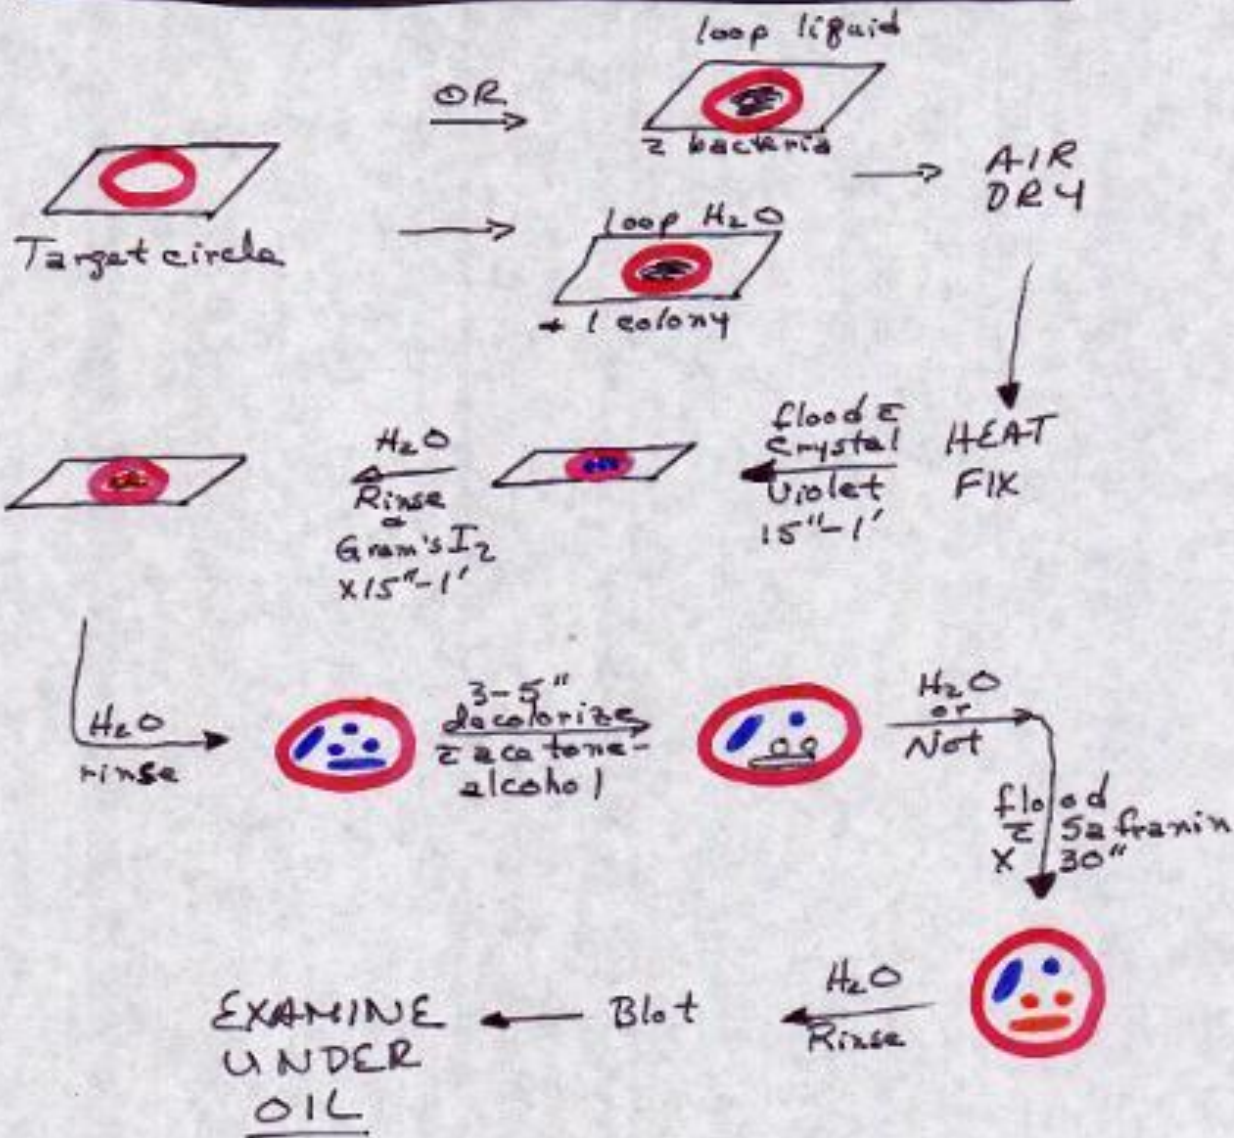 loop liquid
OR
c̄ bacteria
Target circle
loop H₂O
+ 1 colony
AIR
DRY
HEAT
FIX
flood c̄
Crystal
Violet
15"-1'
H₂O
Rinse
Gram's I₂
X15"-1'
H₂O
rinse
3-5"
decolorize
c̄ acetone-
alcohol
H₂O
or
Not
flood
c̄ Safranin
X 30"
H₂O
Rinse
Blot
EXAMINE
UNDER
OIL